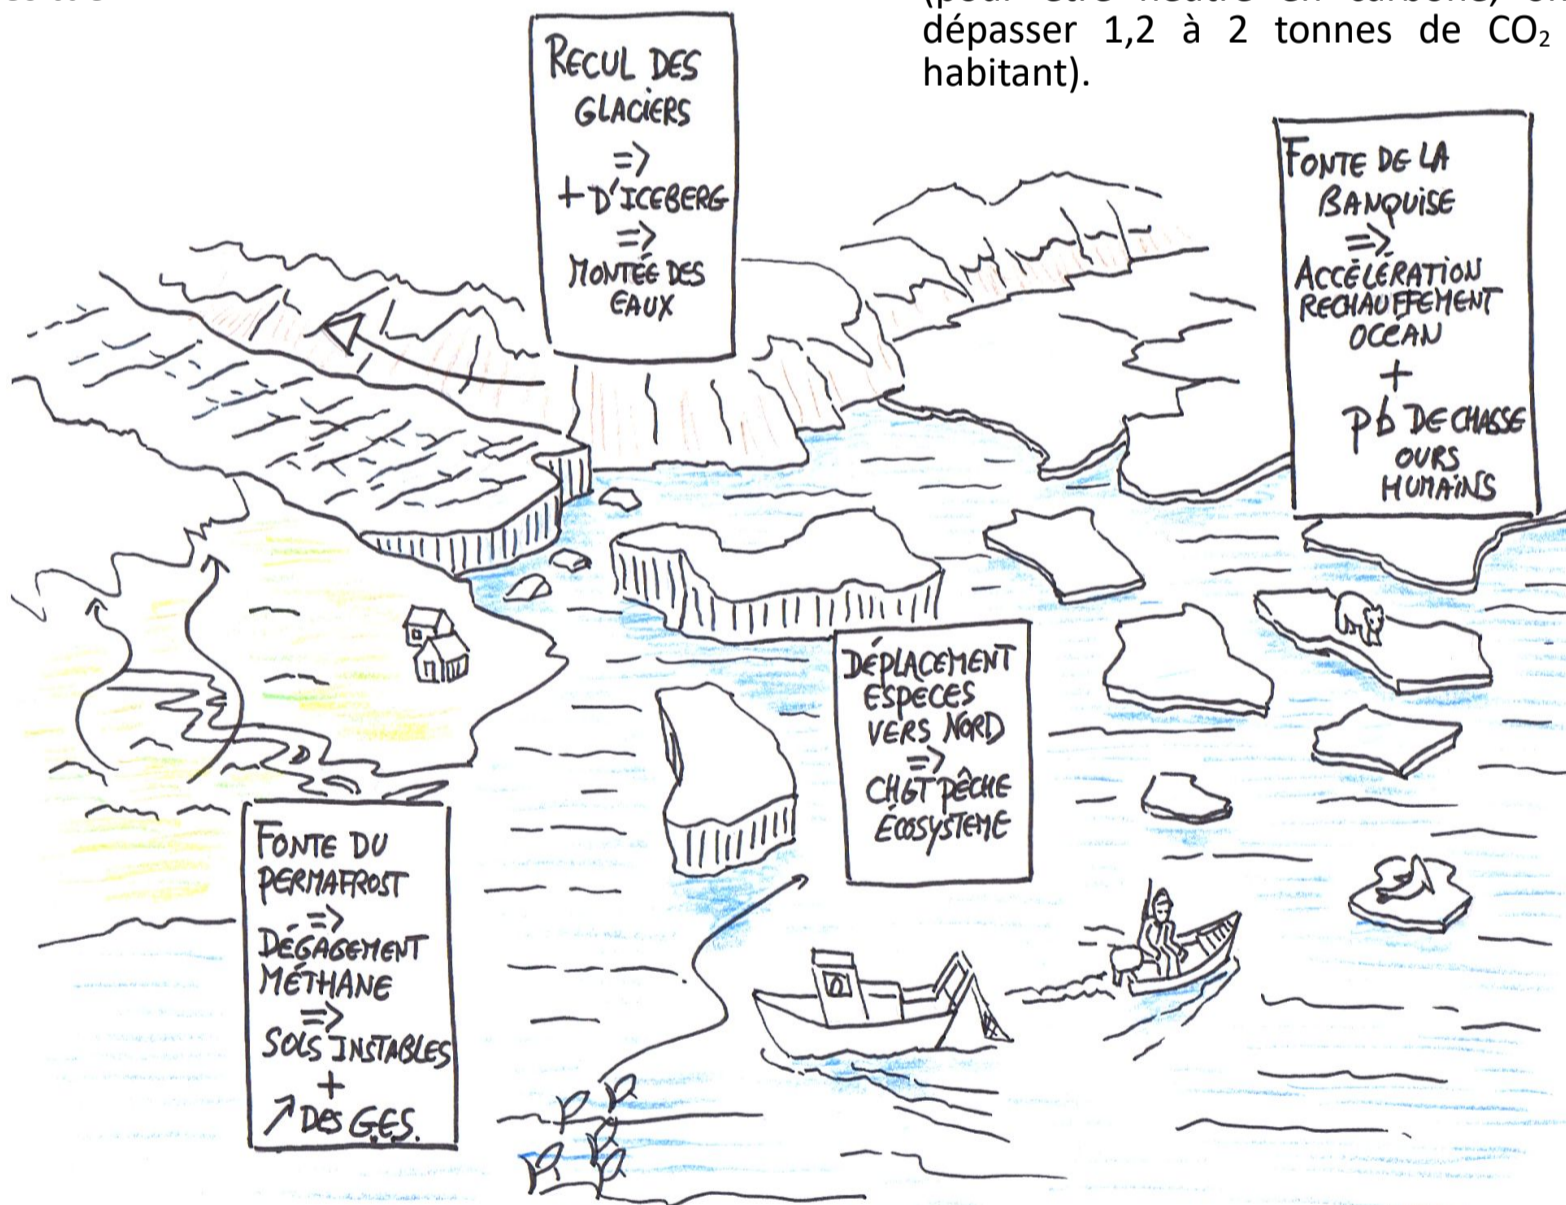 dépasser 1,2 à 2 tonnes de CO₂
habitant).
RECUL DES
GLACIERS
=>
+ D'ICEBERG
=>
MONTÉE DES
EAUX
FONTE DE LA
BANQUISE
=>
ACCÉLÉRATION
RECHAUFFEMENT
OCÉAN
+
pb DE CHASSE
OURS
HUMAINS
DÉPLACEMENT
ESPECES
VERS NORD
=>
CHGT PÊCHE
ÉCOSYSTEME
FONTE DU
PERMAFROST
=>
DÉGAGEMENT
MÉTHANE
=>
SOLS INSTABLES
+
↗ DES G.E.S.